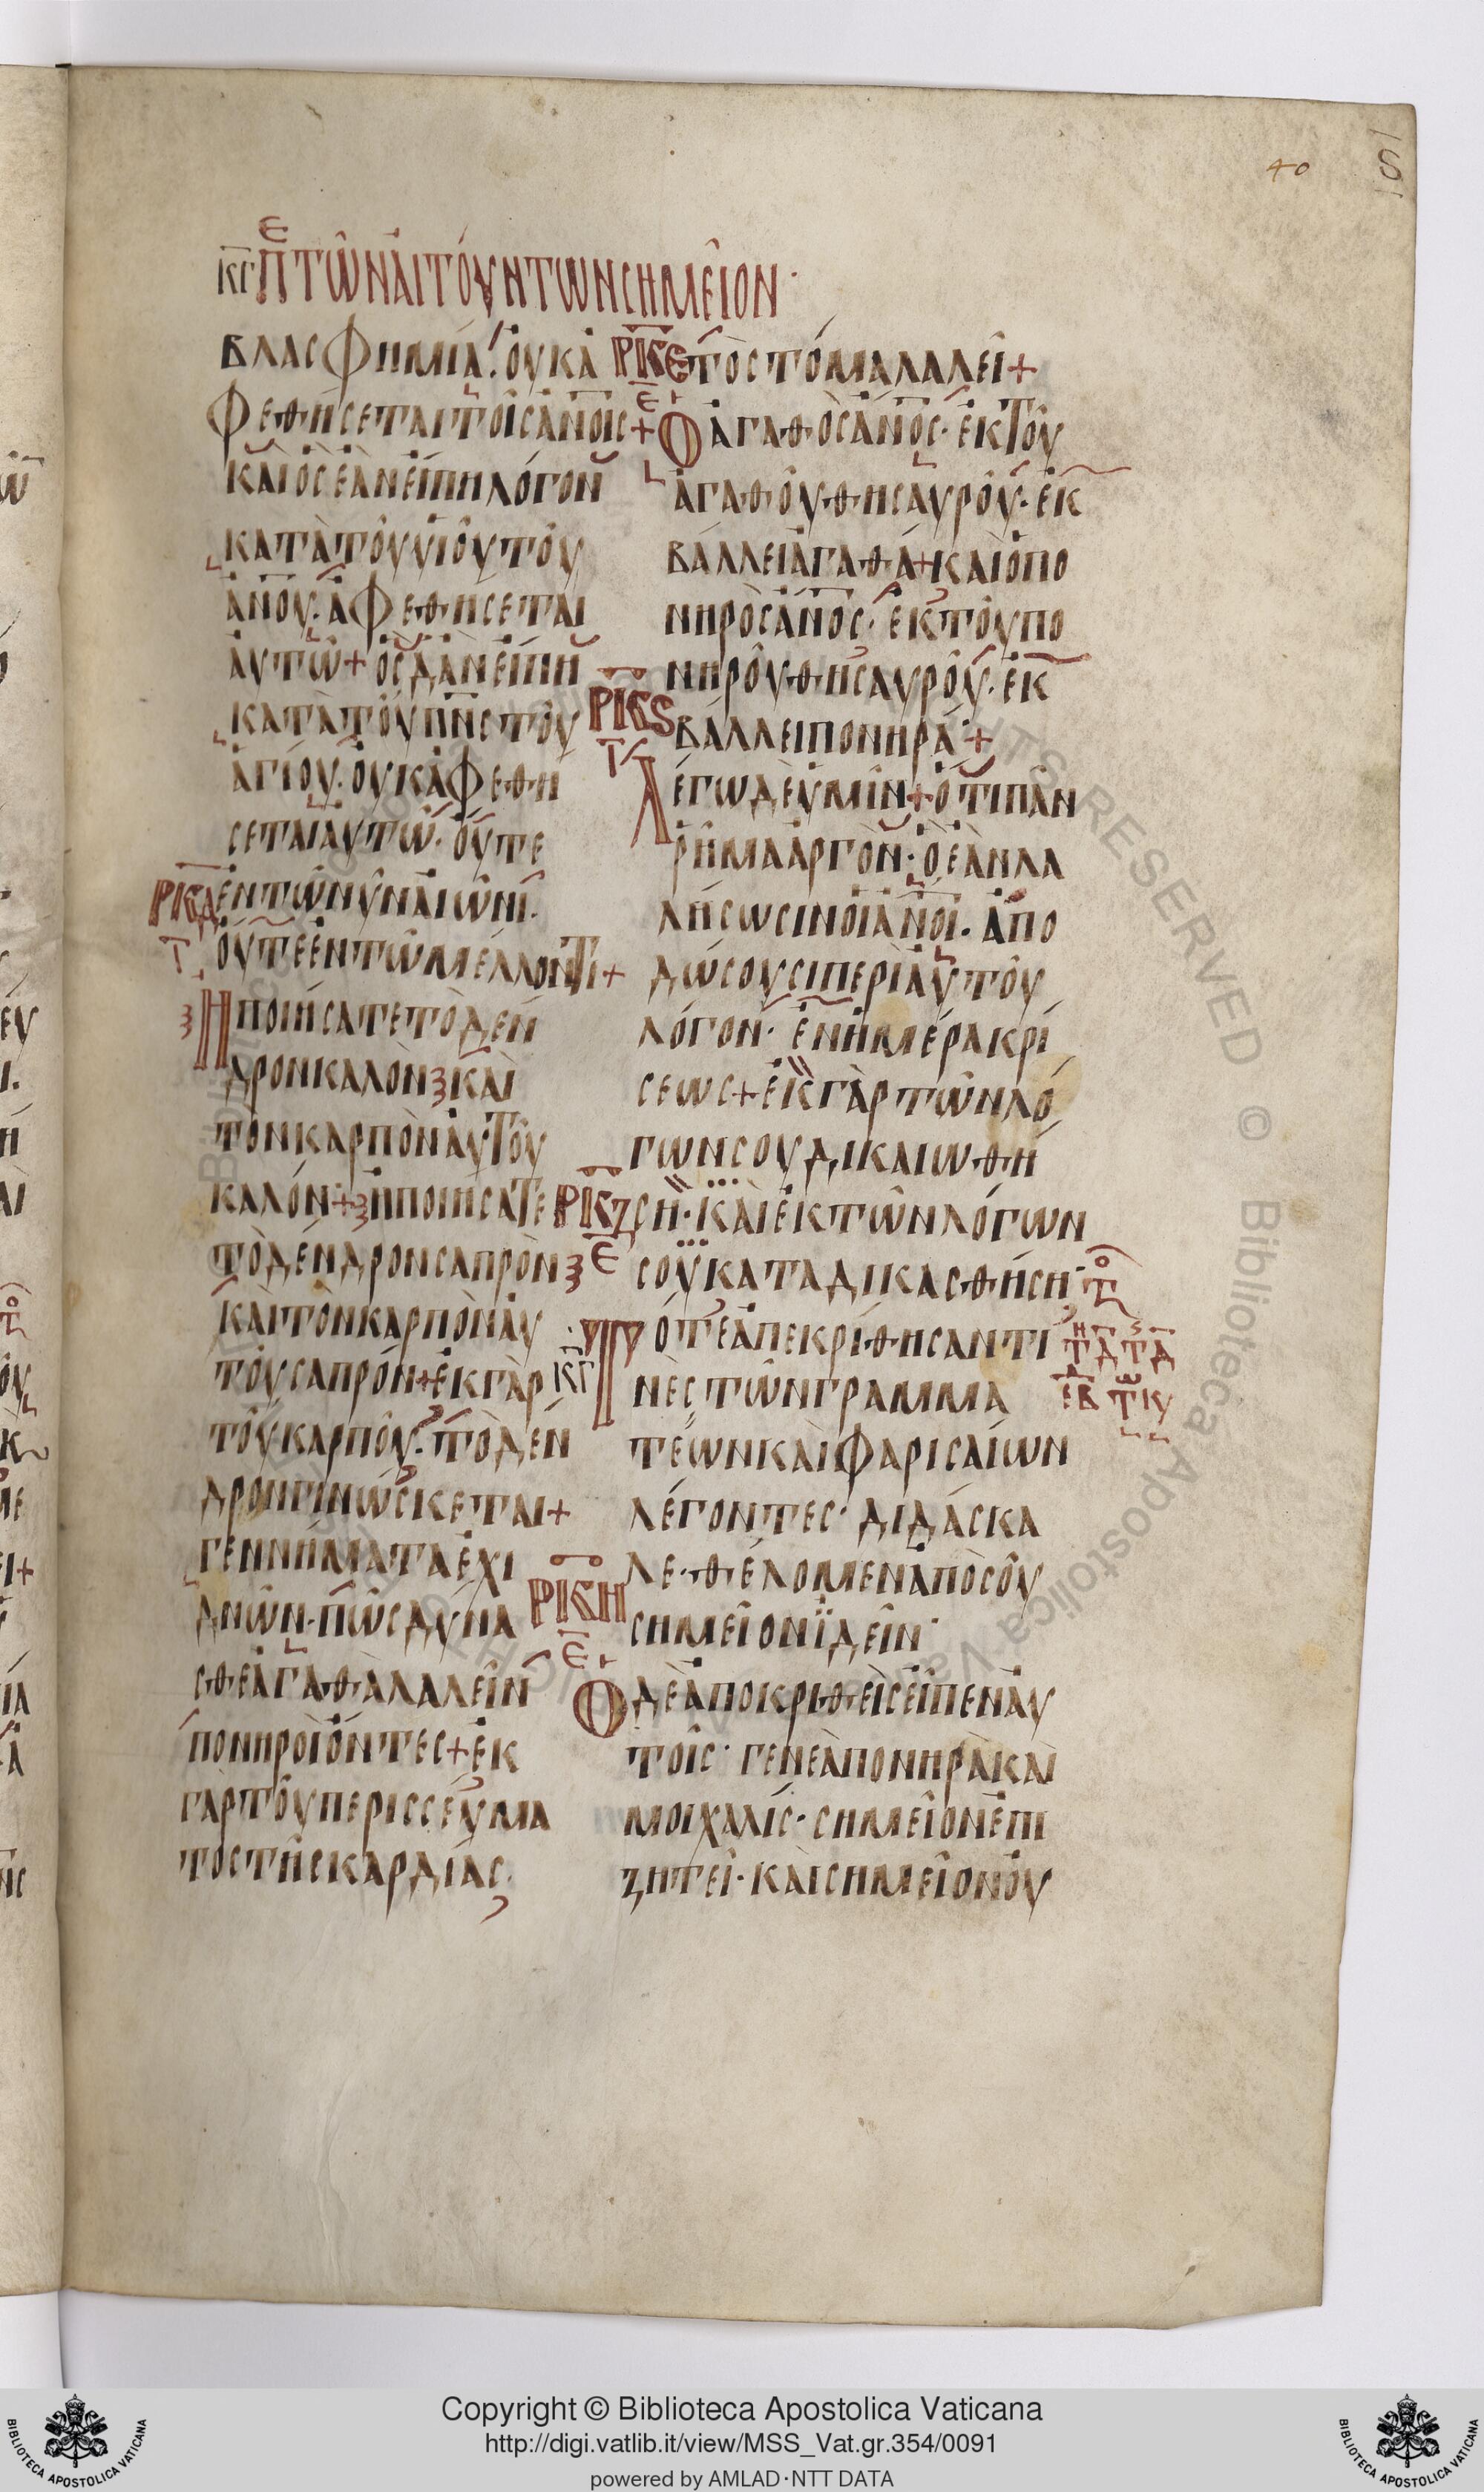 40
81
Ε
ΚΓ ΠΤΩΝΑΙΤΟΥΝΤΩΝΣΗΜΕΙΟΝ·
ΒΛΑΣΦΗΜΙΑ· ΟΥΚΑ
ΦΕΘΗΣΕΤΑΙΤΟΙΣΑΝΟΙΣ+
ΚΑΙΟΣΕΑΝΕΙΠΗΛΟΓΟΝ
ΚΑΤΑΤΟΥΥΙΟΥΤΟΥ
ΑΝΟΥ· ΑΦΕΘΗΣΕΤΑΙ
ΑΥΤΩ+ΟΣΔΑΝΕΙΠΗ
ΚΑΤΑΤΟΥΠΝΣΤΟΥ
ΑΓΙΟΥ· ΟΥΚΑΦΕΘΗ
ΣΕΤΑΙΑΥΤΩ· ΟΥΤΕ
ΡΚΔ ΕΝΤΩΝΥΝΑΙΩΝΙ·
Γ ΟΥΤΕΕΝΤΩΜΕΛΛΟΝΤΙ+
ΗΠΟΙΗΣΑΤΕΤΟΔΕΝ
ΔΡΟΝΚΑΛΟΝ ΚΑΙ
ΤΟΝΚΑΡΠΟΝΑΥΤΟΥ
ΚΑΛΟΝ+ΗΠΟΙΗΣΑΤΕ
ΤΟΔΕΝΔΡΟΝΣΑΠΡΟΝ
ΚΑΙΤΟΝΚΑΡΠΟΝΑΥ
ΤΟΥΣΑΠΡΟΝ+ΕΚΓΑΡ
ΤΟΥΚΑΡΠΟΥ· ΤΟΔΕΝ
ΔΡΟΝΓΙΝΩΣΚΕΤΑΙ+
ΓΕΝΝΗΜΑΤΑΕΧΙ
ΔΝΩΝ· ΠΩΣΔΥΝΑ
ΣΘΕΑΓΑΘΑΛΑΛΕΙΝ
ΠΟΝΗΡΟΙΟΝΤΕΣ+ΕΚ
ΓΑΡΤΟΥΠΕΡΙΣΣΕΥΜΑ
ΤΟΣΤΗΣΚΑΡΔΙΑΣ
ΡΚΕ ΤΟΣΤΟΜΑΛΑΛΕΙ+
Ε ΟΑΓΑΘΟΣΑΝΟΣ· ΕΚΤΟΥ
ΑΓΑΘΟΥΘΗΣΑΥΡΟΥ· ΕΚ
ΒΑΛΛΕΙΑΓΑΘΑ+ΚΑΙΟΠΟ
ΝΗΡΟΣΑΝΟΣ· ΕΚΤΟΥΠΟ
ΝΗΡΟΥΘΗΣΑΥΡΟΥ· ΕΚ
ΡΚϚ ΒΑΛΛΕΙΠΟΝΗΡΑ+
ΛΕΓΩΔΕΥΜΙΝ+ΟΤΙΠΑΝ
ΡΗΜΑΑΡΓΟΝ· ΟΕΑΝΛΑ
ΛΗΣΩΣΙΝΟΙΑΝΟΙ· ΑΠΟ
ΔΩΣΟΥΣΙΠΕΡΙΑΥΤΟΥ
ΛΟΓΟΝ· ΕΝΗΜΕΡΑΚΡΙ
ΣΕΩΣ+ΕΚΓΑΡΤΩΝΛΟ
ΓΩΝΣΟΥΔΙΚΑΙΩΘΗ
ΡΚΖ ΣΗ· ΚΑΙΕΚΤΩΝΛΟΓΩΝ
Ε ΣΟΥΚΑΤΑΔΙΚΑΣΘΗΣΗ·
ΤΟΤΕΑΠΕΚΡΙΘΗΣΑΝΤΙ
ΚΓ ΝΕΣΤΩΝΓΡΑΜΜΑ
ΤΕΩΝΚΑΙΦΑΡΙΣΑΙΩΝ
ΛΕΓΟΝΤΕΣ· ΔΙΔΑΣΚΑ
ΛΕ· ΘΕΛΟΜΕΝΑΠΟΣΟΥ
ΡΚΗ ΣΗΜΕΙΟΝΪΔΕΙΝ·
Ε ΟΔΕΑΠΟΚΡΙΘΕΙΣΕΙΠΕΝΑΥ
ΤΟΙΣ· ΓΕΝΕΑΠΟΝΗΡΑΚΑΙ
ΜΟΙΧΑΛΙΣ· ΣΗΜΕΙΟΝΕΠΙ
ΖΗΤΕΙ· ΚΑΙΣΗΜΕΙΟΝΟΥ
Copyright © Biblioteca Apostolica Vaticana
http://digi.vatlib.it/view/MSS_Vat.gr.354/0091
powered by AMLAD·NTT DATA
BIBLIOTECA APOSTOLICA VATICANA
BIBLIOTECA APOSTOLICA VATICANA